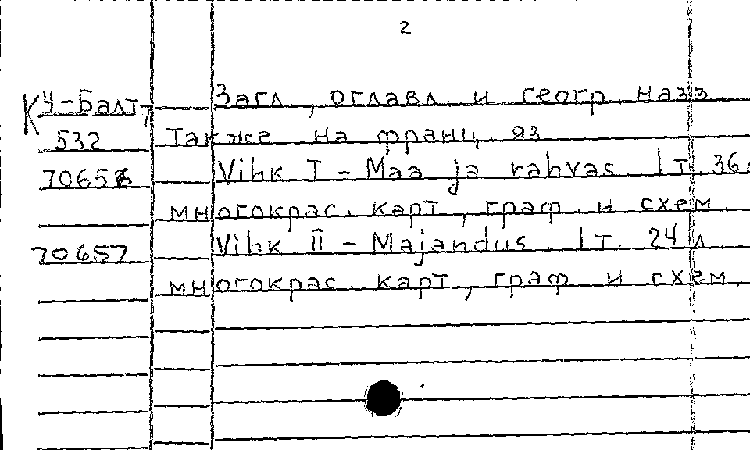 2
КУ-Балт, Загл, оглавл и геогр назв
532 также на франц. яз
70656 Vihk I - Maa ja rahvas 1 т. 36
многокрас. карт, граф. и схем
70657 Vihk II - Majandus. 1 т. 24 л
многокрас карт, граф и схем.